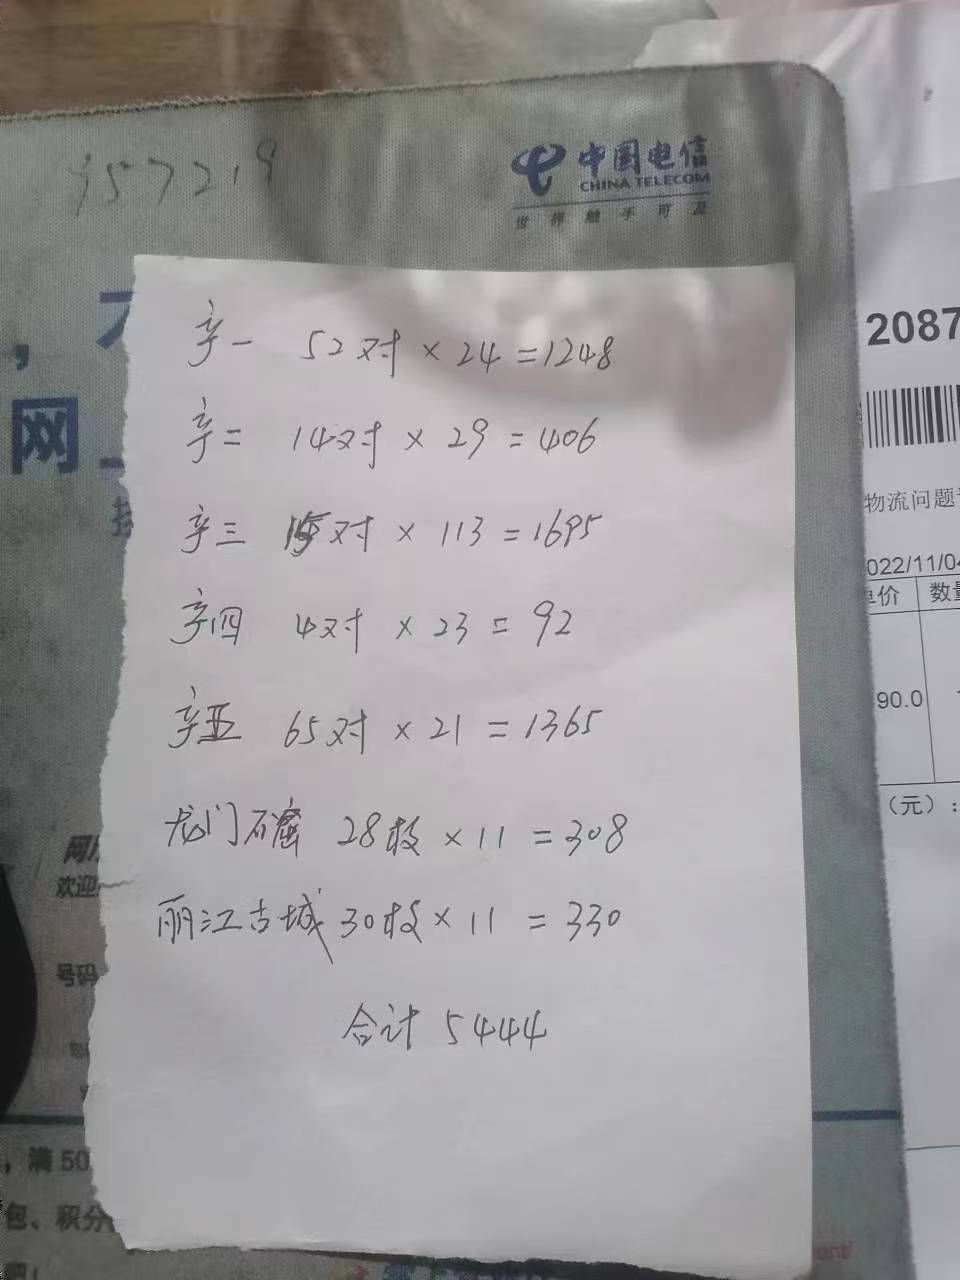 957219
中国电信
CHINA TELECOM
世界触手可及
网
辛一 52对 × 24 = 1248
辛二 14对 × 29 = 406
辛三 15对 × 113 = 1695
辛四 4对 × 23 = 92
辛五 65对 × 21 = 1365
龙门石窟 28枚 × 11 = 308
丽江古城 30枚 × 11 = 330
合计 5444
2087
物流问题
022/11/04
单价 数量
90.0
（元）：
欢迎
号码
，满 50
包、积分